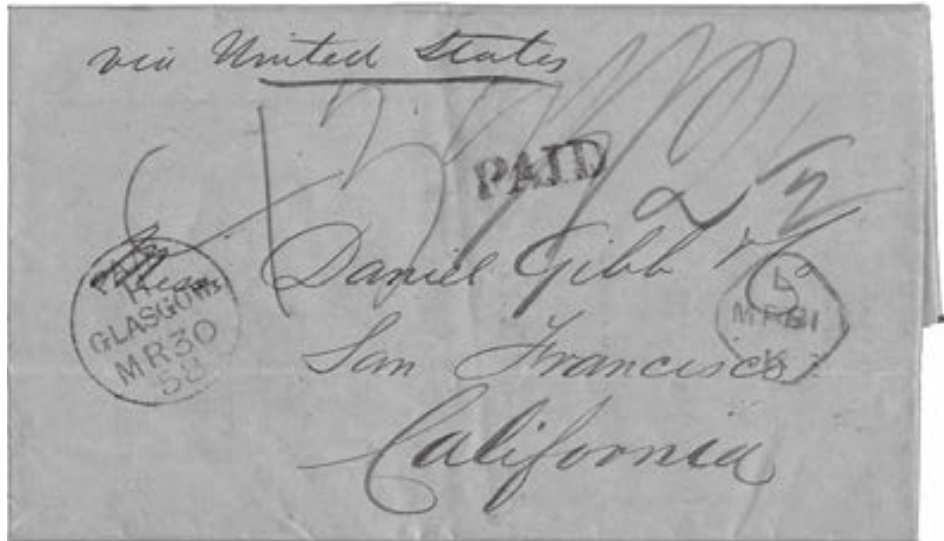 via United States
PAID
2 1/2
Daniel Gibb & Co
San Francisco
California
PAID
GLASGOW
MR 30
L
MR 31